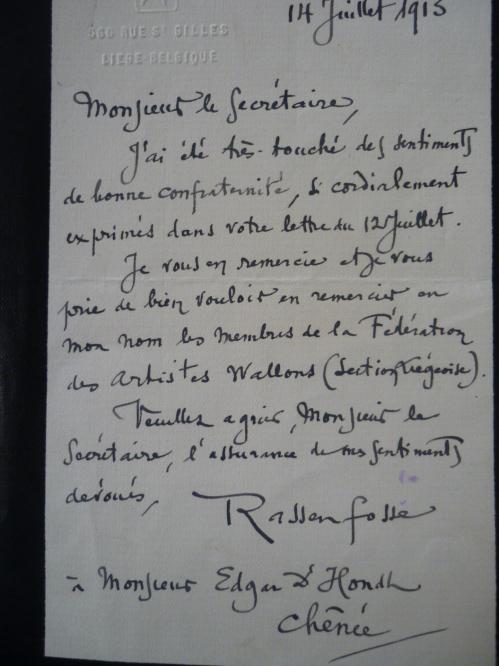 366 RUE St GILLES
LIEGE-BELGIQUE
14 Juillet 1913
Monsieur le Secrétaire,
J'ai été très touché des sentiments
de bonne confraternité, si cordialement
exprimés dans votre lettre du 12 Juillet.
Je vous en remercie et je vous
prie de bien vouloir en remercier en
mon nom les membres de la Fédération
des Artistes Wallons (Section Liégeoise).
Veuillez agréer, Monsieur le
Secrétaire, l'assurance de mes sentiments
dévoués,
Rassenfosse
à Monsieur Edgar D'Hondt
Chênée